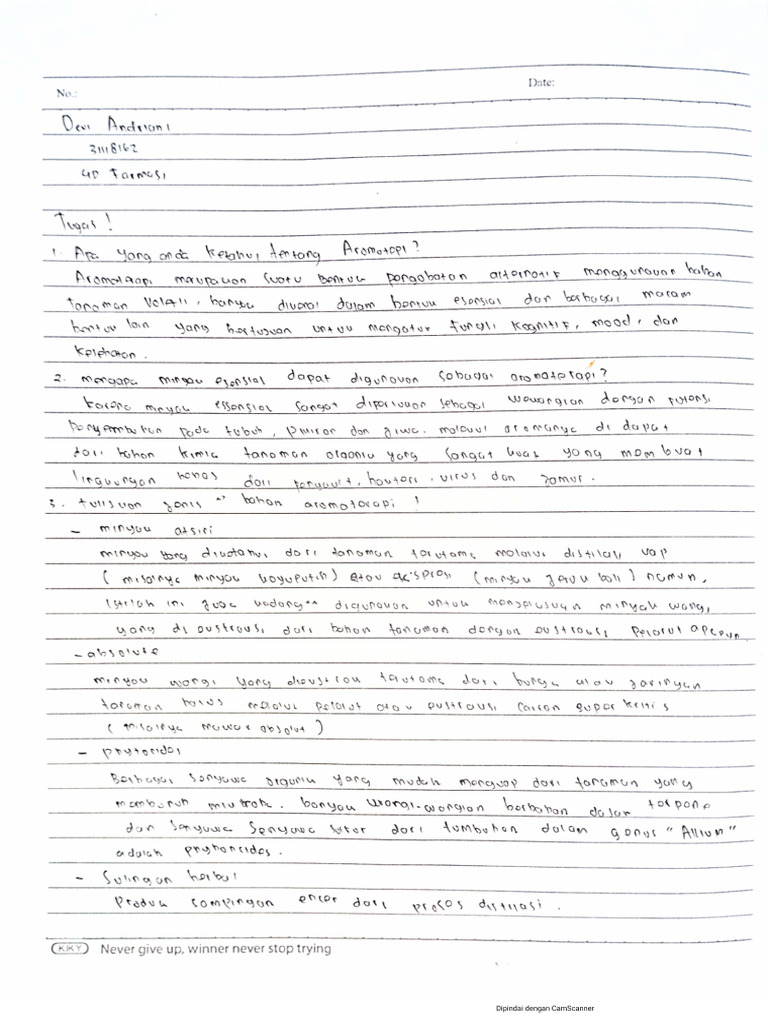 No.:
Date:
Devi Andriani
31118162
4D Farmasi
Tugas !
1. Apa yang anda ketahui tentang Aromatapi?
Aromaterapi merupakan suatu bentuk pengobatan alternatif menggunakan bahan
tanaman volatil, banyak dalam bentuk esensial dan berbagai macam
bentuk lain yang bertujuan untuk mengatur fungsi kognitif, mood, dan
kesehatan.
2. mengapa minyak esensial dapat digunakan sebagai aromaterapi?
karena minyak essensial sangat diperlukan sebagai wewangian dengan potensi
penyembuhan pada tubuh, pikiran dan jiwa. melalui aromanya di dapat
dari bahan kimia tanaman organik yang sangat luas yang membuat
lingkungan bebas dari penyakit, bakteri, virus dan jamur.
3. tuliskan jenis bahan aromaterapi !
- minyak atsiri
minyak yang dari tanaman terutama melalui distilasi uap
(misalnya minyak kayuputih) atau (minyak jeruk bali) namun,
istilah ini juga kadang" digunakan untuk menjelaskan minyak wangi,
yang di ekstraksi dari bahan tanaman dengan ekstraksi pelarut apapun.
- absolute
minyak wangi yang diekstrak terutama dari bunga atau jaringan
tanaman halus melalui pelarut atau ekstraksi cairan super kritis
(misalnya mawar absolut)
- phytoncides
Berbagai senyawa organik yang mudah menguap dari tanaman yang
membunuh mikroba. banyak wangi-wangian berbahan dasar terpene
dan senyawa senyawa sulfur dari tumbuhan dalam genus "Allium"
adalah phytoncides.
- Sulingan herbal
Produk sampingan encer dari proses distilasi.
KIKY Never give up, winner never stop trying
Dipindai dengan CamScanner